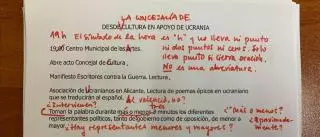 LA CONCEJALÍA DE
DESDE CULTURA EN APOYO DE UCRANIA
19 h El símbolo de la hora es "h" y no lleva ni punto
19,00 Centro Municipal de las Artes. ni dos puntos ni ceros. Solo
lleva punto si cierra oración.
Abre acto Concejal de Cultura. NO es una abreviatura.
Manifiesto Escritores contra la Guerra. Lectura.
Asociación de Ucranianos en Alicante. Lectura de poemas épicos de ucranianos
que se traducirán al español. al valenciano, no?
¿Intervienen? tres
Toman la palabra durante más o menos 3 minutos los diferentes ¿"más o menos"?
representantes políticos, tanto del gobierno como de oposición, de menor a ¿aproximadamente?
mayor. ¿Hay representantes menores y mayores?